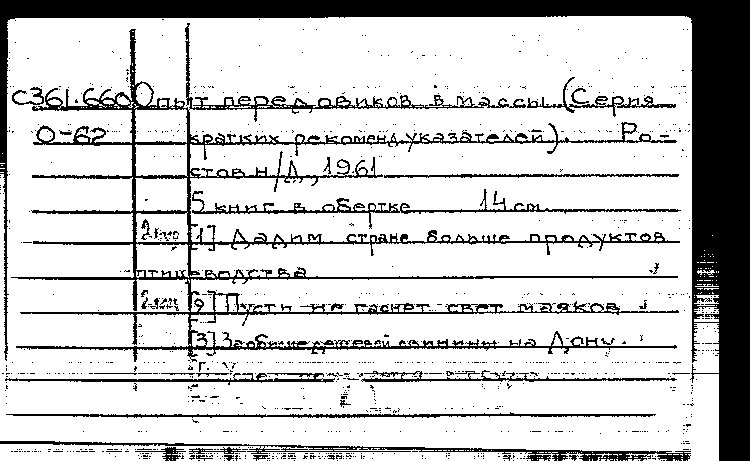 С361.660 Опыт передовиков в массы (Серия
О-62 кратких рекоменд. указателей). Ро-
стов н/Д., 1961
5 книг в обертке 14 см.
2 экз [1]. Дадим стране больше продуктов
птицеводства
2 экз [2] Пусть не гаснет свет маяков
[3] дешевой свинины на Дону.